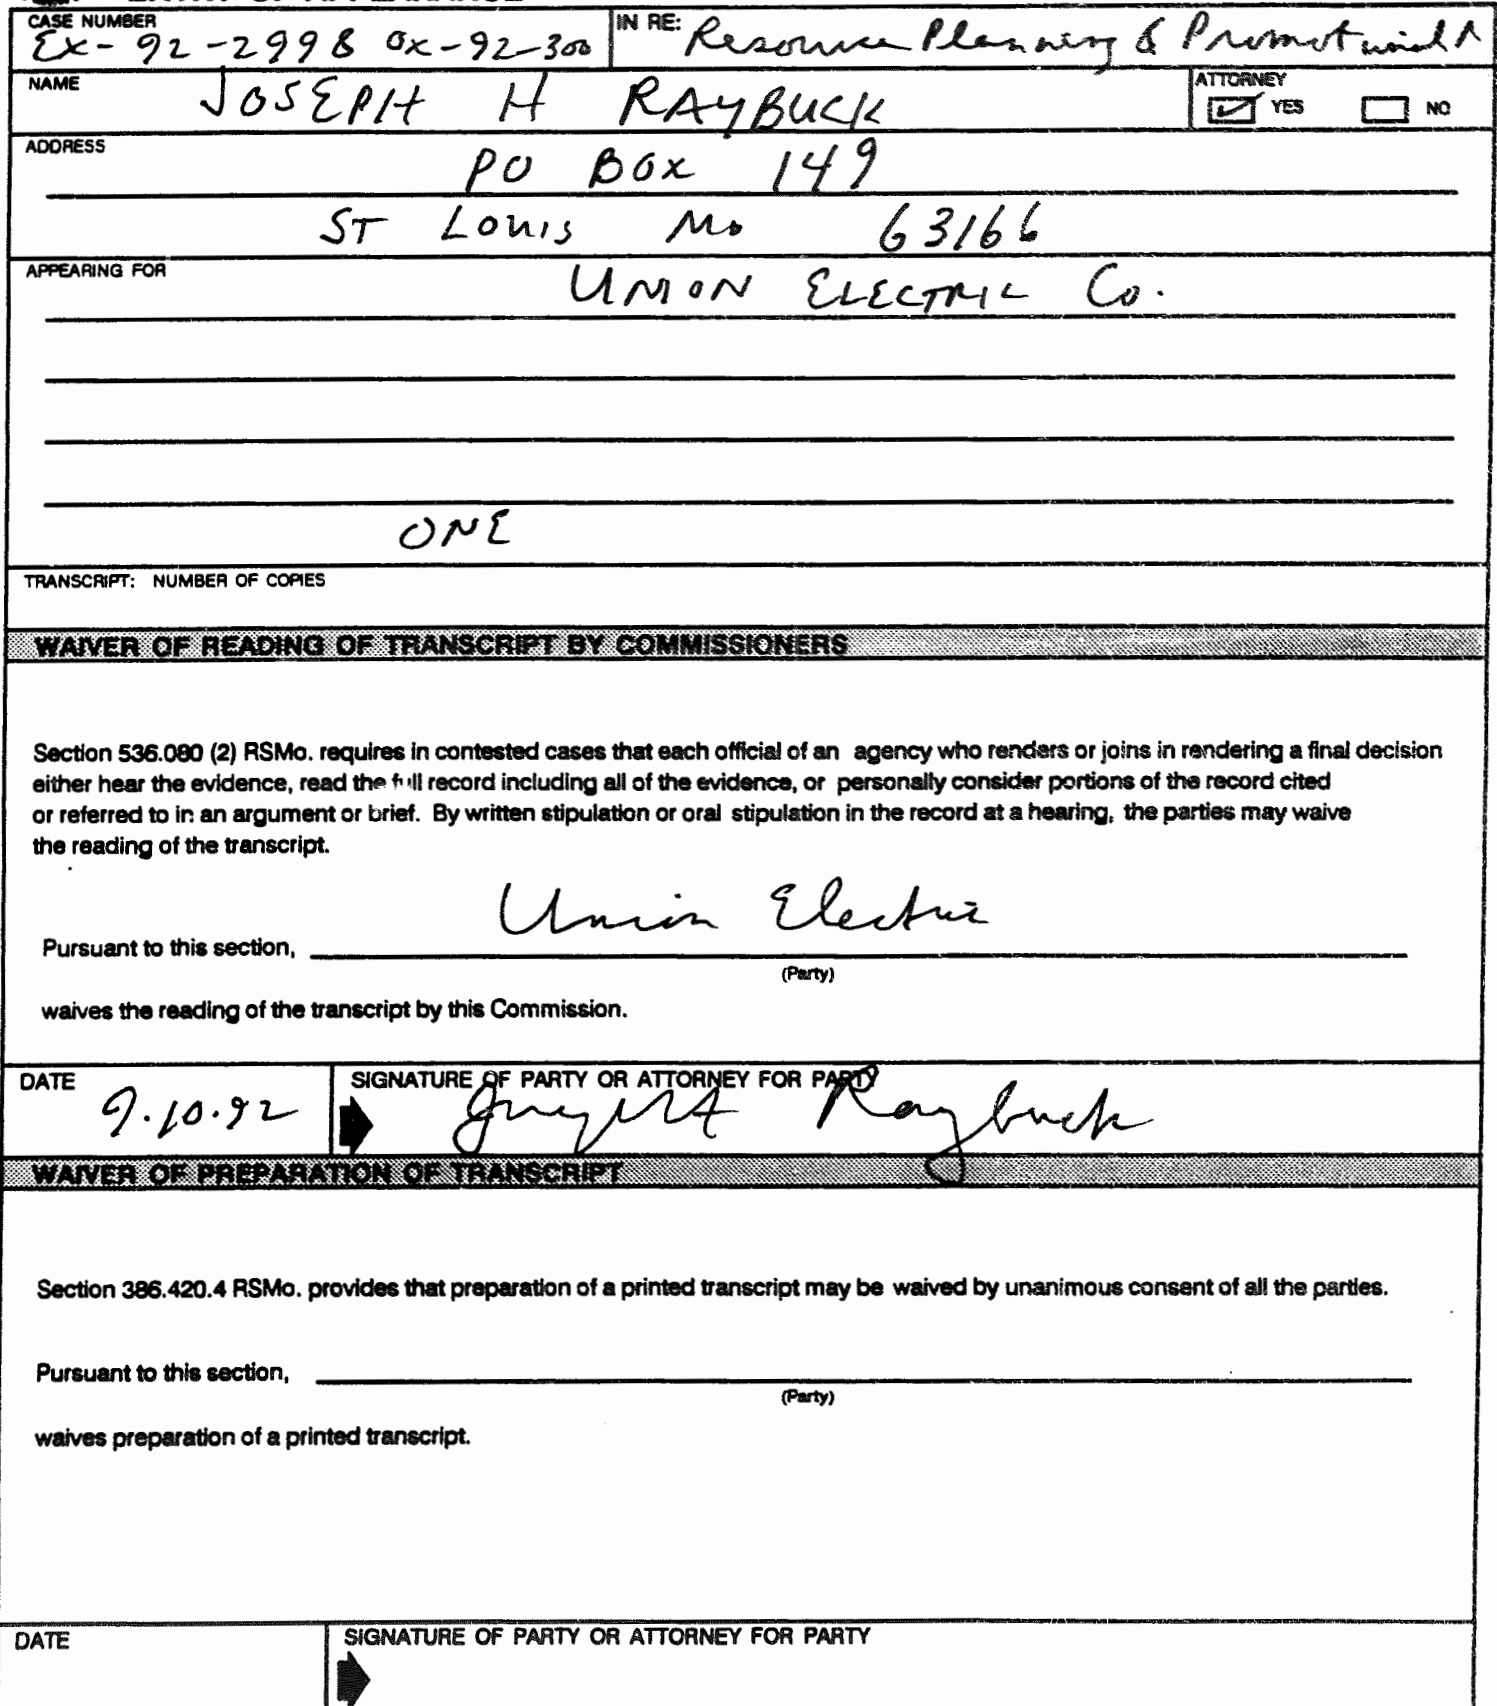 CASE NUMBER
EX-92-299 & OX-92-300
IN RE: Resource Planning & Promotional
NAME
JOSEPH H RAYBUCK
ATTORNEY
YES NO
ADDRESS
PO BOX 149
ST LOUIS Mo 63166
APPEARING FOR
UNION ELECTRIC Co.
ONE
TRANSCRIPT: NUMBER OF COPIES
WAIVER OF READING OF TRANSCRIPT BY COMMISSIONERS
Section 536.080 (2) RSMo. requires in contested cases that each official of an agency who renders or joins in rendering a final decision
either hear the evidence, read the full record including all of the evidence, or personally consider portions of the record cited
or referred to in an argument or brief. By written stipulation or oral stipulation in the record at a hearing, the parties may waive
the reading of the transcript.
Union Electric
Pursuant to this section,
(Party)
waives the reading of the transcript by this Commission.
DATE
9.10.92
SIGNATURE OF PARTY OR ATTORNEY FOR PARTY
Raybuck
WAIVER OF PREPARATION OF TRANSCRIPT
Section 386.420.4 RSMo. provides that preparation of a printed transcript may be waived by unanimous consent of all the parties.
Pursuant to this section,
(Party)
waives preparation of a printed transcript.
DATE
SIGNATURE OF PARTY OR ATTORNEY FOR PARTY